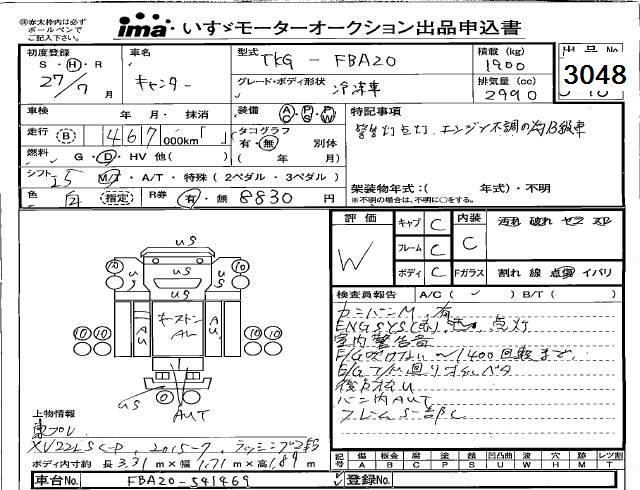 ※太枠内は必ず
ボールペンで
ご記入下さい。
ima いすゞモーターオークション出品申込書
初度登録
S・H・R
27/7 月
車名
キャンター
型式
TKG - FBA20
グレード・ボディ形状
冷凍車
積載 (kg)
1900
排気量 (cc)
2990
出品No
3048
車検 年 月・抹消
装備 AC PS PW
走行 B 467 000km「 」
タコグラフ
有・無 別体
( 年 月)
燃料 G・D・HV 他( )
シフト I5 M/T・A/T・特殊(2ペダル・3ペダル)
色 白 指定 R券 有・無 8830 円
特記事項
警告灯点灯、エンジン不調の為B級車
架装物年式:( 年式)・不明
※不明の場合は、不明に○をする。
評価
W
キャブ C
フレーム C
ボディ C
内装
C
Fガラス
汚れ 破れ
割れ 線 点傷 イバリ
検査員報告 A/C( ) B/T( )
カンバンM.有
ENG SYS(赤) 点灯
室内警告音
E/G吹けない~1400回転まで
E/G
バン内AUT
フレームS一部C
us
us
us
us
us
us
10
10
10
10
10
10
AU
AU
キーストン
AU
us
AUT
上物情報
東プレ
XV22LSC-P、2015-7、ラッシング2段
ボディ内寸約 長 3.31 m×幅 1.71 m×高 1.89 m
記号 傷 板金 腐 塗 錆 凹凸曲 波 穴 跡 レツ割
A B C P S U W H M T
車台No. FBA20-541469
登録No.